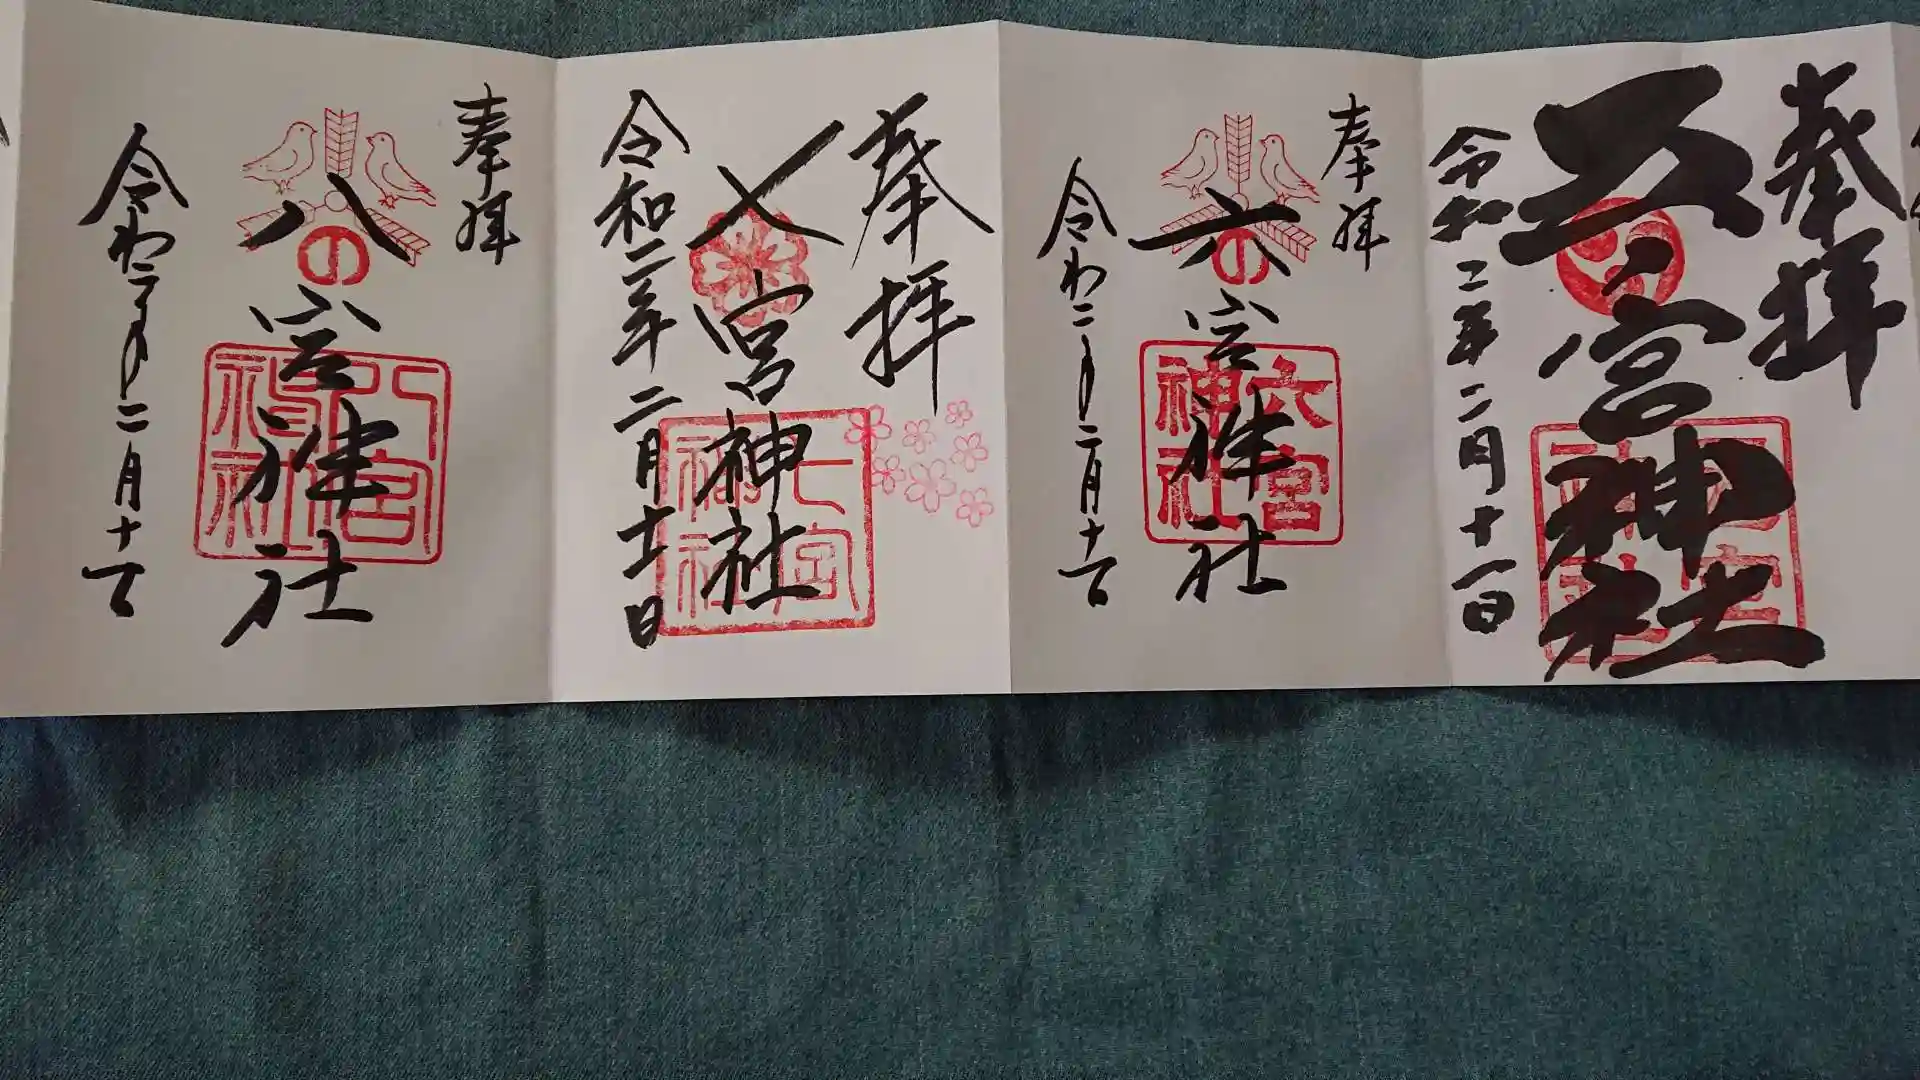 奉拝
五宮神社
令和二年二月十一日
奉拝
六宮神社
六宮神社
令和二年二月十一日
奉拝
七宮神社
七宮神社
令和二年二月十一日
奉拝
八宮神社
八宮神社
令和二年二月十一日